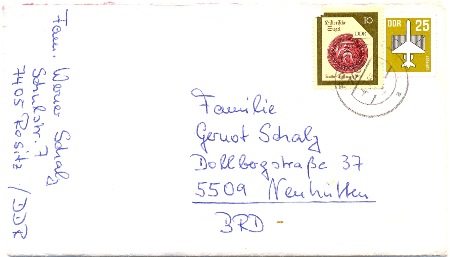 Fam. Werner Schalz
Schulstr. 7
7405 Rositz / DDR
Historische
Siegel
10
DDR
DDR 25
Familie
Gernot Schalz
Dollbergstraße 37
5509 Neuhütten
BRD